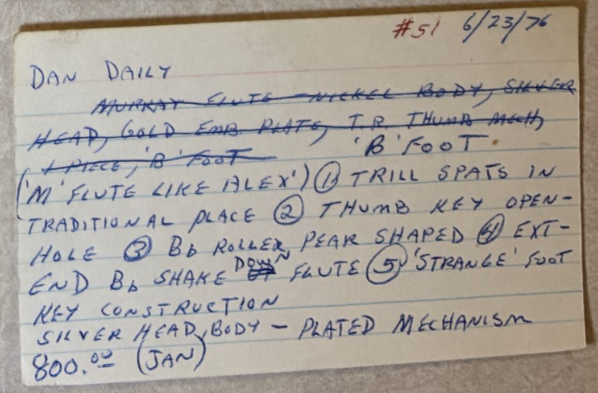 #51 6/23/76
DAN DAILY
MURRAY FLUTE - NICKEL BODY, SILVER
HEAD, GOLD EMB. PLATE, T.R THUMB MECH,
1 PIECE, 'B' FOOT 'B' FOOT.
('M' FLUTE LIKE ALEX') ① TRILL SPATS IN
TRADITIONAL PLACE ② THUMB KEY OPEN-
HOLE ③ Bb ROLLER PEAR SHAPED ④ EXT-
END Bb SHAKE DOWN FLUTE ⑤ 'STRANGE' FOOT
KEY CONSTRUCTION
SILVER HEAD, BODY - PLATED MECHANISM
800.00 (JAN)